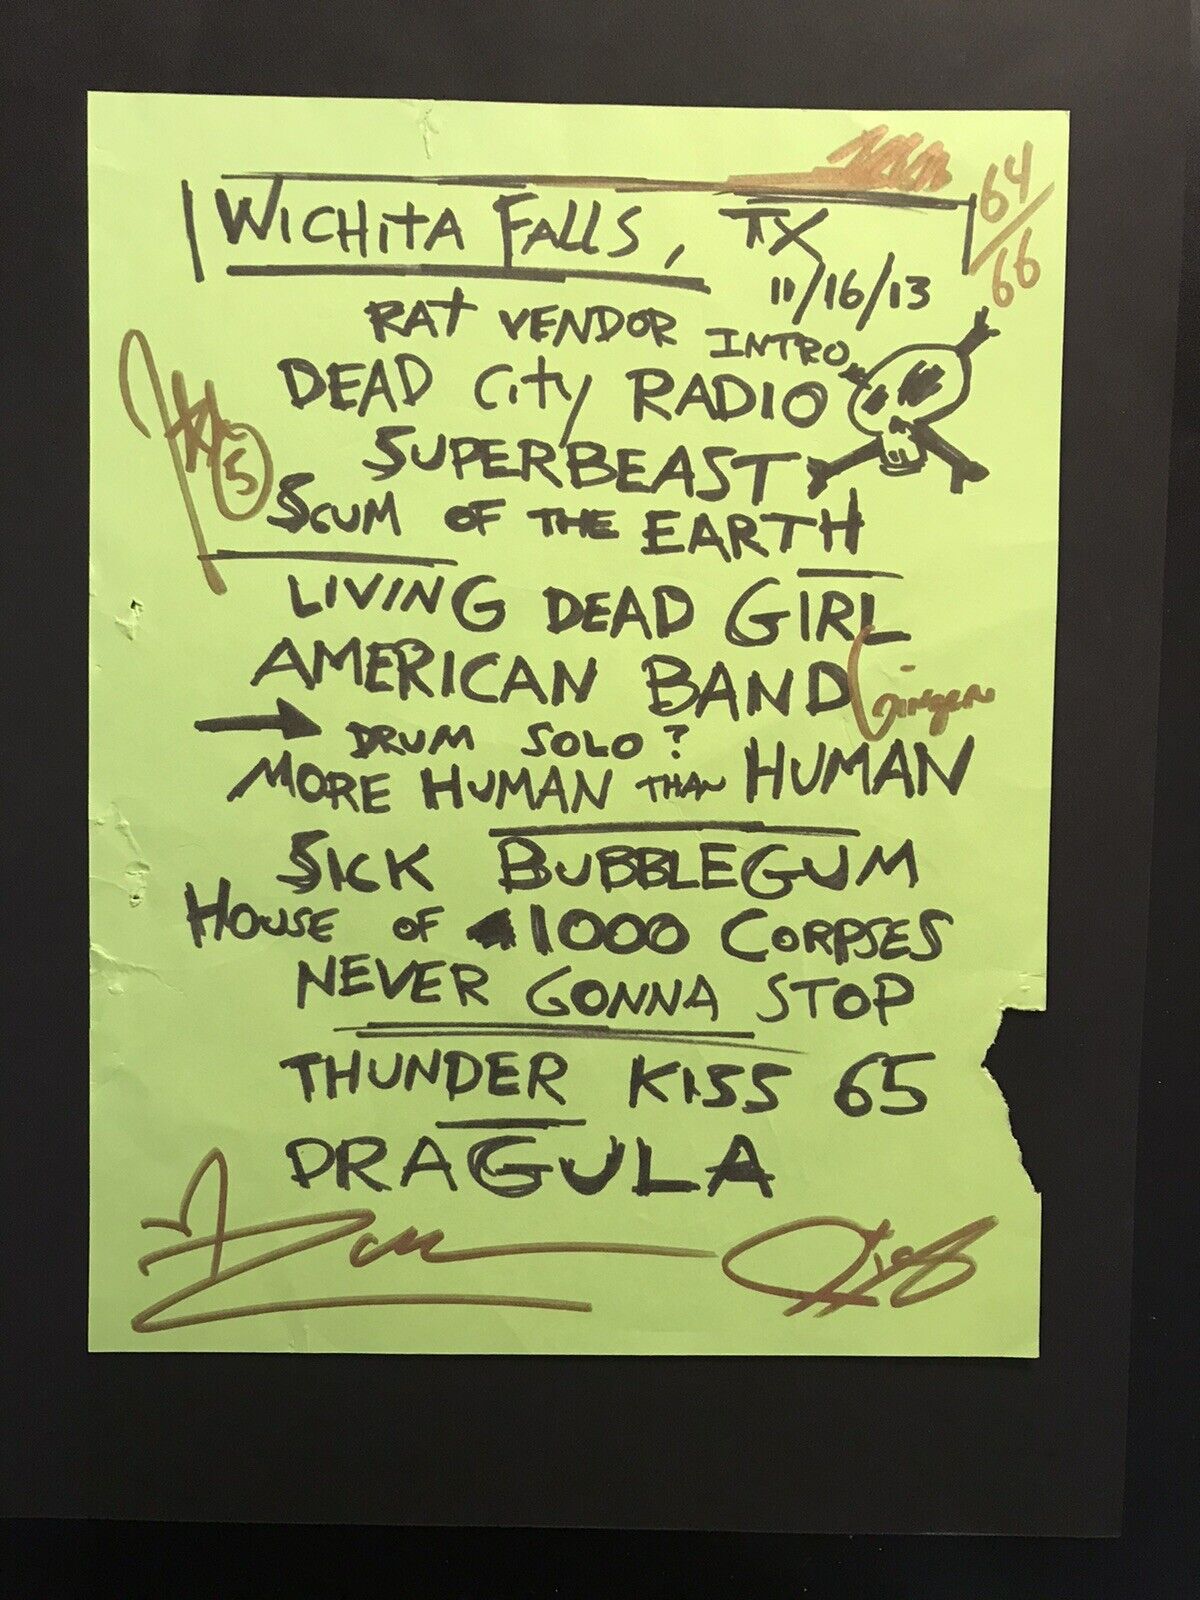 WICHITA FALLS, TX
64/66
11/16/13
RAT VENDOR INTRO
DEAD City RADIO
SUPERBEAST
5
SCUM OF THE EARTH
LIVING DEAD GIRL
AMERICAN BAND
Ginger
DRUM SOLO?
MORE HUMAN THAN HUMAN
SICK BUBBLEGUM
HOUSE OF 1000 CORPSES
NEVER GONNA STOP
THUNDER KISS 65
DRAGULA